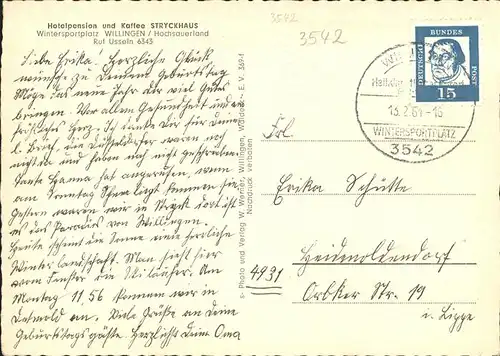 Hotelpension und Kaffee STRYCKHAUS
Wintersportplatz WILLINGEN / Hochsauerland
Ruf Usseln 6345
Liebe Erika! Herzliche Glück-
wünsche zu Deinem Geburtstag
Möge das neue Jahr dir viel Gutes
bringen. Vor allem Gesundheit und ein
fröhliches Herz. Ich danke dir für Deinen
l. Brief, die Düsseldorfer waren noch
nicht da und haben auch nicht geschrieben.
Tante Hanna hat angerufen, wenn
am Sonntag kommen sie.
Gestern waren wir in Stryck dort ist
es das Paradies von Willingen.
Heute scheint die Sonne eine herrliche
Winterlandschaft. Man sieht hier
vom Fenster die Skiläufer. Am
Montag 11,56 kommen wir in
Detmold an. Viele Grüße an deine
Geburtstagsgäste. Herzlichst Deine Oma
Photo und Verlag W. Werner, Willingen, Waldeck - E. V. 369-f
Nachdruck verboten
3542
3542
DEUTSCHE BUNDESPOST
15
13.2.61-16
WINTERSPORTPLATZ
3542
Frl
Erika Schütte
4931
Heidenoldendorf
Orbker Str. 19
i. Lippe